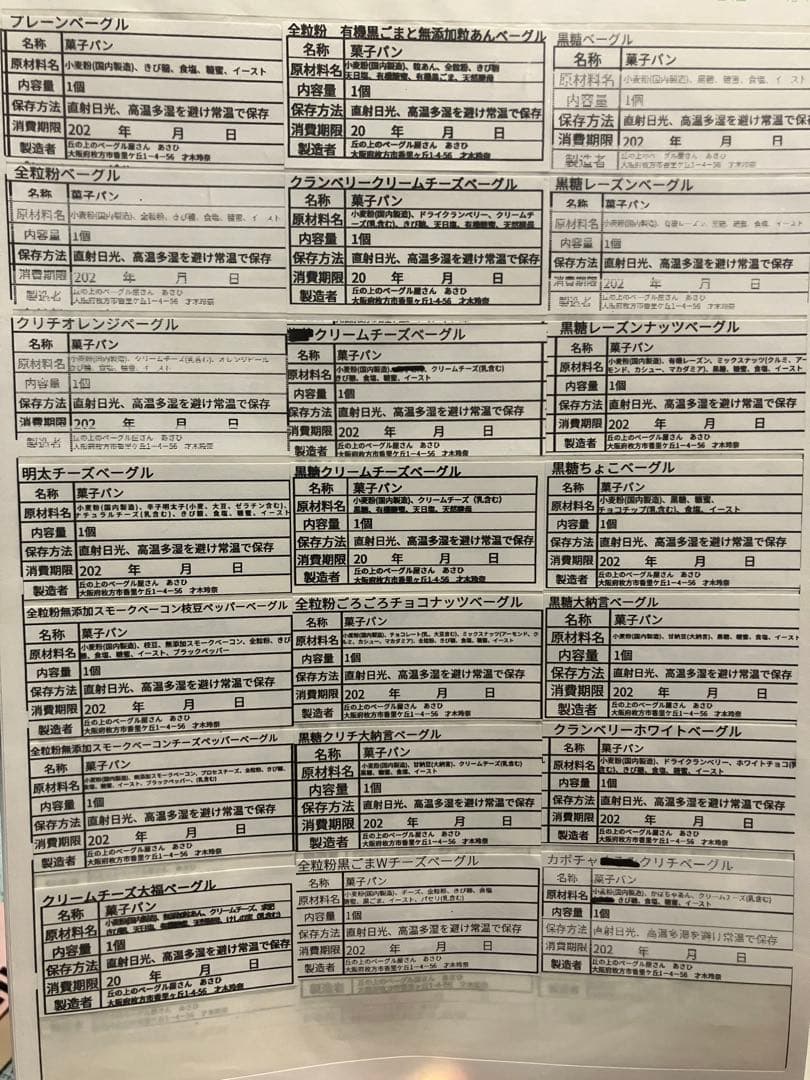 プレーンベーグル
名称 菓子パン
原材料名 小麦粉(国内製造)、きび糖、食塩、糖蜜、イースト
内容量 1個
保存方法 直射日光、高温多湿を避け常温で保存
消費期限 202 年 月 日
製造者 丘の上のベーグル屋さん あさひ
大阪府枚方市香里ケ丘1-4-56 才木玲奈
全粒粉 有機黒ごまと無添加粒あんベーグル
名称 菓子パン
原材料名 小麦粉(国内製造)、粒あん、全粒粉、きび糖
天日塩、有機糖蜜、有機黒ごま、天然酵母
内容量 1個
保存方法 直射日光、高温多湿を避け常温で保存
消費期限 20 年 月 日
製造者 丘の上のベーグル屋さん あさひ
大阪府枚方市香里ケ丘1-4-56 才木玲奈
黒糖ベーグル
名称 菓子パン
原材料名 小麦粉(国内製造)、黒糖、糖蜜、食塩、イースト
内容量 1個
保存方法 直射日光、高温多湿を避け常温で保
消費期限 202 年 月 日
製造者 丘の上のベーグル屋さん あさひ
大阪府枚方市香里ケ丘1-4-56 才木玲奈
全粒粉ベーグル
名称 菓子パン
原材料名 小麦粉(国内製造)、全粒粉、きび糖、食塩、糖蜜、イースト
内容量 1個
保存方法 直射日光、高温多湿を避け常温で保存
消費期限 202 年 月 日
製造者 丘の上のベーグル屋さん あさひ
大阪府枚方市香里ケ丘1-4-56 才木玲奈
クランベリークリームチーズベーグル
名称 菓子パン
原材料名 小麦粉(国内製造)、ドライクランベリー、クリームチ
ーズ(乳含む)、きび糖、天日塩、有機糖蜜、天然酵母
内容量 1個
保存方法 直射日光、高温多湿を避け常温で保存
消費期限 20 年 月 日
製造者 丘の上のベーグル屋さん あさひ
大阪府枚方市香里ケ丘1-4-56 才木玲奈
黒糖レーズンベーグル
名称 菓子パン
原材料名 小麦粉(国内製造)、有機レーズン、黒糖、糖蜜、食塩、イースト
内容量 1個
保存方法 直射日光、高温多湿を避け常温で保存
消費期限 202 年 月 日
製造者 丘の上のベーグル屋さん あさひ
大阪府枚方市香里ケ丘1-4-56 才木玲奈
クリチオレンジベーグル
名称 菓子パン
原材料名 小麦粉(国内製造)、クリームチーズ(乳含む)、オレンジピール
きび糖、食塩、糖蜜、イースト
内容量 1個
保存方法 直射日光、高温多湿を避け常温で保存
消費期限 202 年 月 日
製造者 丘の上のベーグル屋さん あさひ
大阪府枚方市香里ケ丘1-4-56 才木玲奈
クリームチーズベーグル
名称 菓子パン
原材料名 小麦粉(国内製造)、クリームチーズ(乳含む)
きび糖、食塩、糖蜜、イースト
内容量 1個
保存方法 直射日光、高温多湿を避け常温で保存
消費期限 202 年 月 日
製造者 丘の上のベーグル屋さん あさひ
大阪府枚方市香里ケ丘1-4-56 才木玲奈
黒糖レーズンナッツベーグル
名称 菓子パン
原材料名 小麦粉(国内製造)、有機レーズン、ミックスナッツ(クルミ、アー
モンド、カシュー、マカダミア)、黒糖、糖蜜、食塩、イースト
内容量 1個
保存方法 直射日光、高温多湿を避け常温で保存
消費期限 202 年 月 日
製造者 丘の上のベーグル屋さん あさひ
大阪府枚方市香里ケ丘1-4-56 才木玲奈
明太チーズベーグル
名称 菓子パン
原材料名 小麦粉(国内製造)、辛子明太子(小麦、大豆、ゼラチン含む)、
ナチュラルチーズ(乳含む)、きび糖、食塩、糖蜜、イースト
内容量 1個
保存方法 直射日光、高温多湿を避け常温で保存
消費期限 202 年 月 日
製造者 丘の上のベーグル屋さん あさひ
大阪府枚方市香里ケ丘1-4-56 才木玲奈
黒糖クリームチーズベーグル
名称 菓子パン
原材料名 小麦粉(国内製造)、クリームチーズ(乳含む)
黒糖、有機糖蜜、天日塩、天然酵母
内容量 1個
保存方法 直射日光、高温多湿を避け常温で保存
消費期限 20 年 月 日
製造者 丘の上のベーグル屋さん あさひ
大阪府枚方市香里ケ丘1-4-56 才木玲奈
黒糖ちょこベーグル
名称 菓子パン
原材料名 小麦粉(国内製造)、黒糖、糖蜜、
チョコチップ(乳含む)、食塩、イースト
内容量 1個
保存方法 直射日光、高温多湿を避け常温で保存
消費期限 202 年 月 日
製造者 丘の上のベーグル屋さん あさひ
大阪府枚方市香里ケ丘1-4-56 才木玲奈
全粒粉無添加スモークベーコン枝豆ペッパーベーグル
名称 菓子パン
原材料名 小麦粉(国内製造)、枝豆、無添加スモークベーコン、全粒粉、きび
糖、食塩、糖蜜、イースト、ブラックペッパー
内容量 1個
保存方法 直射日光、高温多湿を避け常温で保存
消費期限 202 年 月 日
製造者 丘の上のベーグル屋さん あさひ
大阪府枚方市香里ケ丘1-4-56 才木玲奈
全粒粉ごろごろチョコナッツベーグル
名称 菓子パン
原材料名 小麦粉(国内製造)、チョコレート(乳、大豆含む)、ミックスナッツ(アーモンド、ク
ルミ、カシュー、マカダミア)、全粒粉、きび糖、食塩、糖蜜、イースト
内容量 1個
保存方法 直射日光、高温多湿を避け常温で保存
消費期限 202 年 月 日
製造者 丘の上のベーグル屋さん あさひ
大阪府枚方市香里ケ丘1-4-56 才木玲奈
黒糖大納言ベーグル
名称 菓子パン
原材料名 小麦粉(国内製造)、甘納豆(大納言)、黒糖、糖蜜、食塩、イースト
内容量 1個
保存方法 直射日光、高温多湿を避け常温で保存
消費期限 202 年 月 日
製造者 丘の上のベーグル屋さん あさひ
大阪府枚方市香里ケ丘1-4-56 才木玲奈
全粒粉無添加スモークベーコンチーズペッパーベーグル
名称 菓子パン
原材料名 小麦粉(国内製造)、無添加スモークベーコン、プロセスチーズ、全粒粉、きび糖、
食塩、糖蜜、イースト、ブラックペッパー、(乳含む)
内容量 1個
保存方法 直射日光、高温多湿を避け常温で保存
消費期限 202 年 月 日
製造者 丘の上のベーグル屋さん あさひ
大阪府枚方市香里ケ丘1-4-56 才木玲奈
黒糖クリチ大納言ベーグル
名称 菓子パン
原材料名 小麦粉(国内製造)、甘納豆(大納言)、クリームチーズ(乳含む)
黒糖、糖蜜、食塩、イースト
内容量 1個
保存方法 直射日光、高温多湿を避け常温で保存
消費期限 202 年 月 日
製造者 丘の上のベーグル屋さん あさひ
大阪府枚方市香里ケ丘1-4-56 才木玲奈
クランベリーホワイトベーグル
名称 菓子パン
原材料名 小麦粉(国内製造)、ドライクランベリー、ホワイトチョコ(乳
含む)、きび糖、食塩、糖蜜、イースト
内容量 1個
保存方法 直射日光、高温多湿を避け常温で保存
消費期限 202 年 月 日
製造者 丘の上のベーグル屋さん あさひ
大阪府枚方市香里ケ丘1-4-56 才木玲奈
クリームチーズ大福ベーグル
名称 菓子パン
原材料名 小麦粉(国内製造)、無添加粒あん、クリームチーズ、求肥
きび糖、天日塩、有機糖蜜、天然酵母、けしの実(乳含む)
内容量 1個
保存方法 直射日光、高温多湿を避け常温で保存
消費期限 20 年 月 日
製造者 丘の上のベーグル屋さん あさひ
大阪府枚方市香里ケ丘1-4-56 才木玲奈
全粒粉黒ごまWチーズベーグル
名称 菓子パン
原材料名 小麦粉(国内製造)、チーズ、全粒粉、きび糖、食塩
糖蜜、黒ごま、イースト、パセリ(乳含む)
内容量 1個
保存方法 直射日光、高温多湿を避け常温で保存
消費期限 202 年 月 日
製造者 丘の上のベーグル屋さん あさひ
大阪府枚方市香里ケ丘1-4-56 才木玲奈
カボチャ クリチベーグル
名称 菓子パン
原材料名 小麦粉(国内製造)、かぼちゃあん、クリームチーズ(乳含む)
きび糖、食塩、糖蜜、イースト
内容量 1個
保存方法 直射日光、高温多湿を避け常温で保存
消費期限 202 年 月 日
製造者 丘の上のベーグル屋さん あさひ
大阪府枚方市香里ケ丘1-4-56 才木玲奈